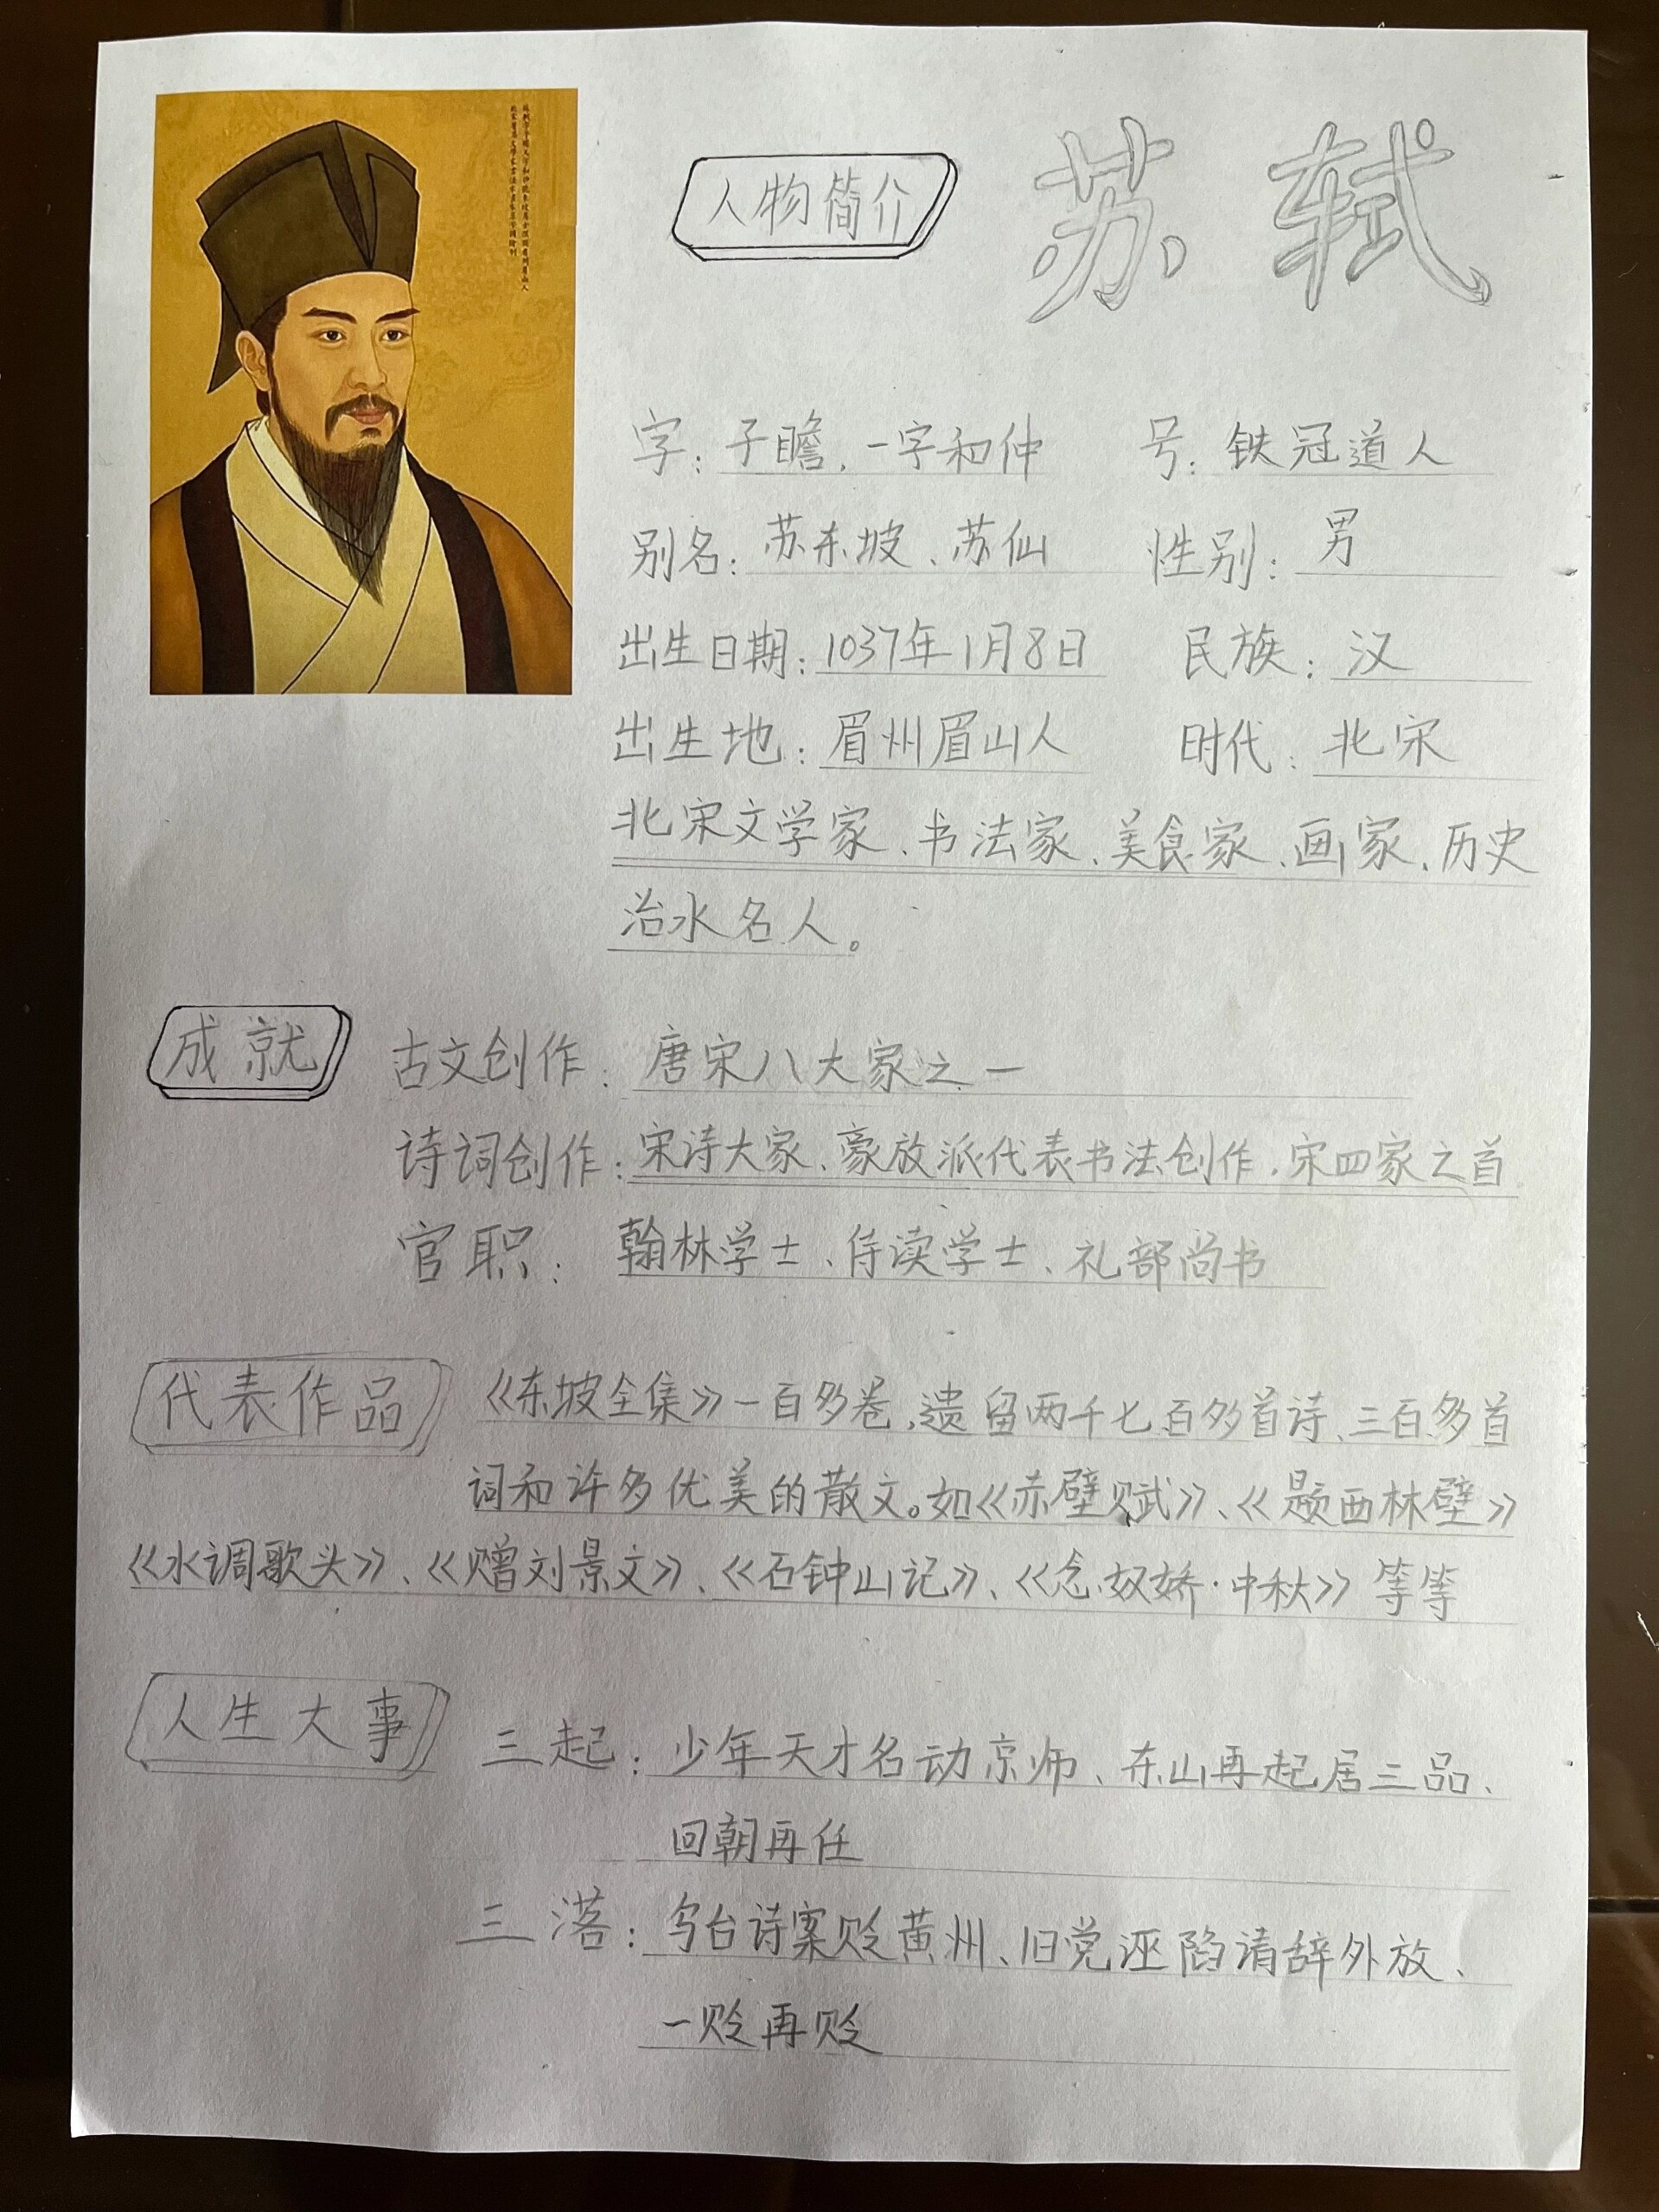 苏轼
人物简介
字：子瞻，一字和仲 号：铁冠道人
别名：苏东坡、苏仙 性别：男
出生日期：1037年1月8日 民族：汉
出生地：眉州眉山人 时代：北宋
北宋文学家、书法家、美食家、画家、历史
治水名人。
成就
古文创作：唐宋八大家之一
诗词创作：宋诗大家、豪放派代表书法创作，宋四家之首
官职：翰林学士、侍读学士、礼部尚书
代表作品
《东坡全集》一百多卷，遗留两千七百多首诗、三百多首
词和许多优美的散文。如《赤壁赋》、《题西林壁》
《水调歌头》、《赠刘景文》、《石钟山记》、《念奴娇·中秋》等等
人生大事
三起：少年天才名动京师、东山再起居三品、
回朝再任
三落：乌台诗案贬黄州、旧党诬陷请辞外放、
一贬再贬